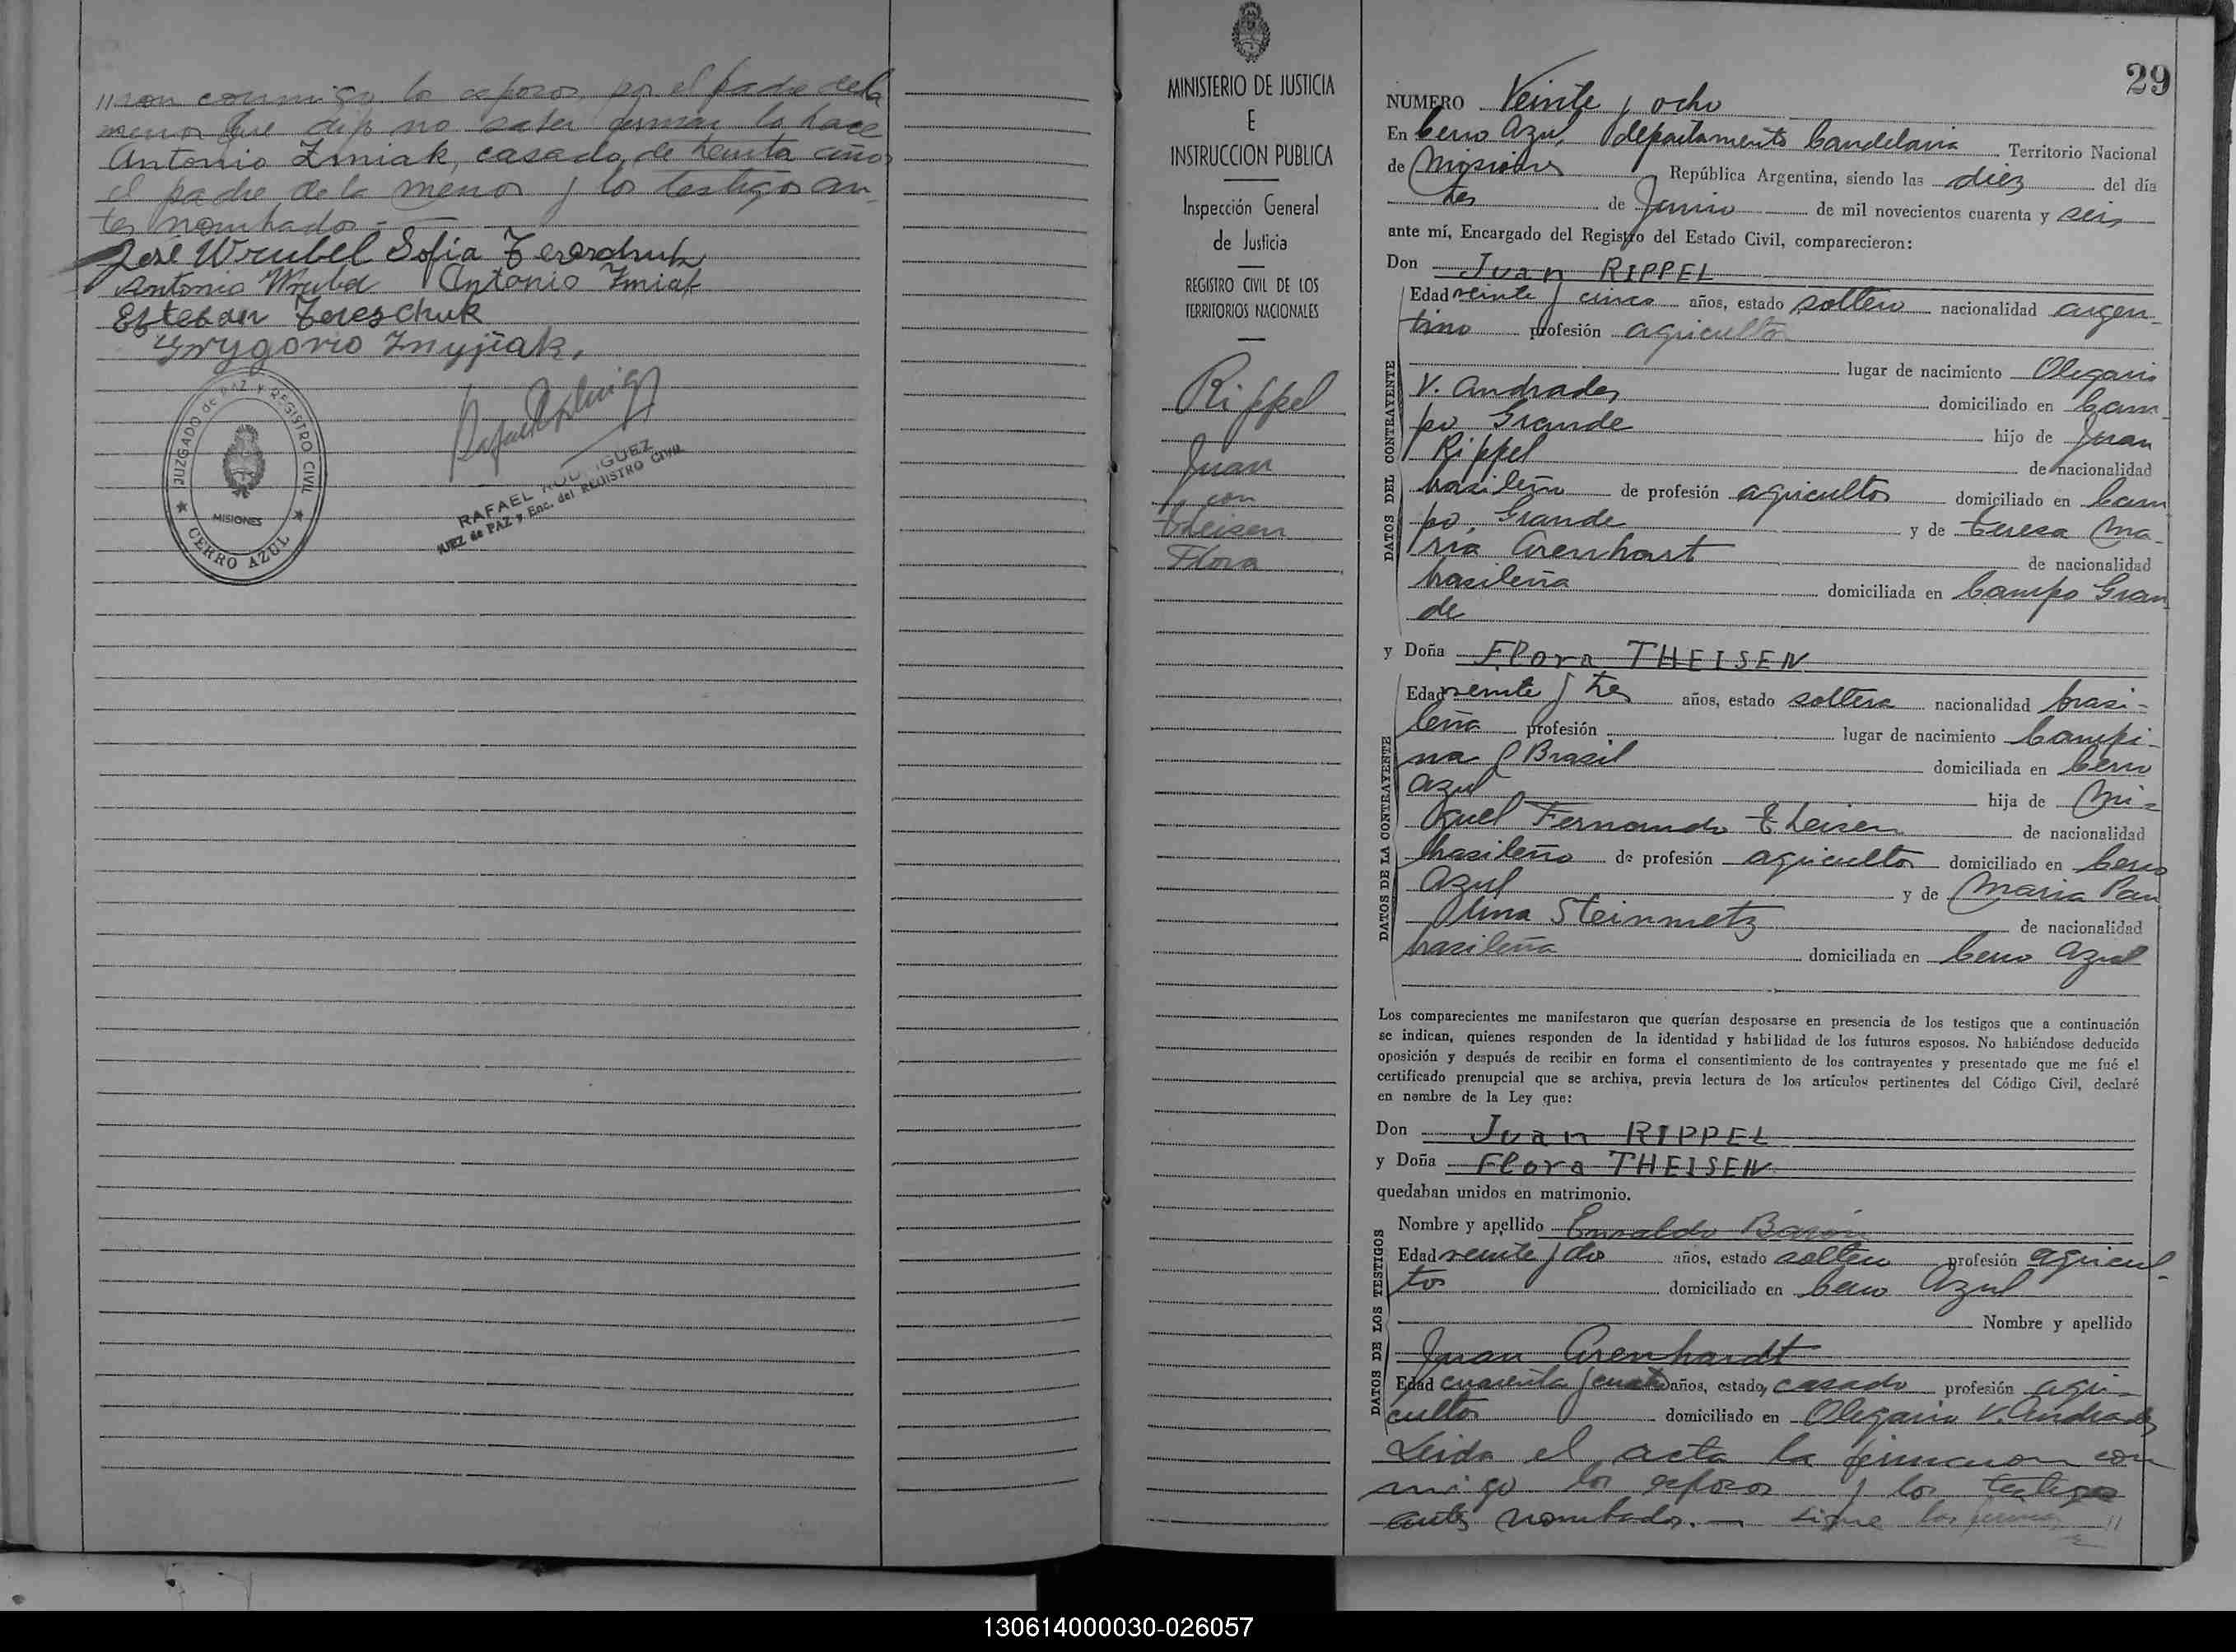 //ron conmigo los esposos, por el padre de la
menor que dijo no saber firmar lo hace
Antonio Zmiak, casado, de treinta años
el padre de la menor y los testigos an-
tes nombrados.-
José Wrubel Sofia Tereschuk
Antonio Wrubel Antonio Zmiak
Esteban Tereschuk
Grygorio Znyjiak.
JUZGADO de PAZ Y REGISTRO CIVIL
MISIONES
CERRO AZUL
RAFAEL RODRIGUEZ
JUEZ de PAZ y Enc. del REGISTRO CIVIL
MINISTERIO DE JUSTICIA
E
INSTRUCCION PUBLICA
Inspección General
de Justicia
REGISTRO CIVIL DE LOS
TERRITORIOS NACIONALES
Rippel
Juan
con
theisen
Flora
29
NUMERO Veinte y ocho
En Cerro Azul, departamento Candelaria Territorio Nacional
de Misiones República Argentina, siendo las diez del día
tres de Junio de mil novecientos cuarenta y seis
ante mí, Encargado del Registro del Estado Civil, comparecieron:
Don Juan RIPPEL
DATOS DEL CONTRAYENTE
Edad veinte y cinco años, estado soltero nacionalidad argen-
tino profesión agricultor
lugar de nacimiento Olegario
V. Andrades domiciliado en Cam-
po Grande hijo de Juan
Rippel de nacionalidad
brasileño de profesión agricultor domiciliado en Cam
po, Grande y de teresa Ma-
ria Arenhart de nacionalidad
brasileña domiciliada en Campo Gran
de
y Doña Flora THEISEN
DATOS DE LA CONTRAYENTE
Edad veinte y tres años, estado soltera nacionalidad brasi-
leña profesión lugar de nacimiento Campi-
na Brasil domiciliada en Cerro
Azul hija de Mi-
guel Fernando theisen de nacionalidad
brasileño de profesión agricultor domiciliado en Cerro
Azul y de Maria Pau
lina Steinmetz de nacionalidad
brasileña domiciliada en Cerro Azul
Los comparecientes me manifestaron que querían desposarse en presencia de los testigos que a continuación
se indican, quienes responden de la identidad y habilidad de los futuros esposos. No habiéndose deducido
oposición y después de recibir en forma el consentimiento de los contrayentes y presentado que me fué el
certificado prenupcial que se archiva, previa lectura de los artículos pertinentes del Código Civil, declaré
en nombre de la Ley que:
Don Juan RIPPEL
y Doña Flora THEISEN
quedaban unidos en matrimonio.
DATOS DE LOS TESTIGOS
Nombre y apellido
Edad veinte y dos años, estado soltero profesión agricul-
tor domiciliado en Cerro Azul
Nombre y apellido
Juan Arenhardt
Edad cuarenta y cuatro años, estado, casado profesión agri-
cultor domiciliado en Olegario V. Andrades
Leida el acta la firmaron con
migo los esposos y los testigos
antes nombrados.- sigue las firmas //
130614000030-026057